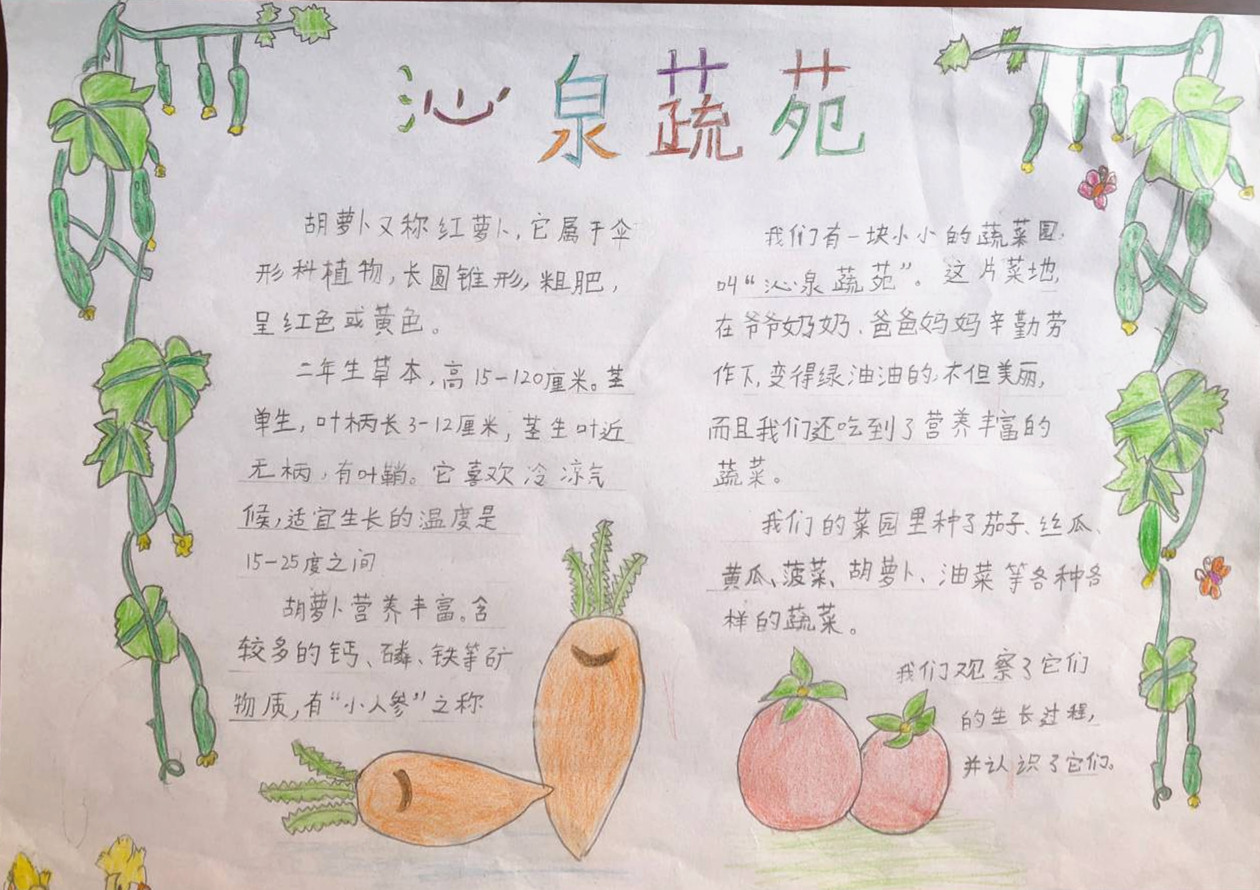 沁泉蔬苑
胡萝卜又称红萝卜,它属于伞
形科植物,长圆锥形,粗肥,
呈红色或黄色。
二年生草本,高15-120厘米。茎
单生,叶柄长3-12厘米,茎生叶近
无柄,有叶鞘。它喜欢冷凉气
候,适宜生长的温度是
15-25度之间
胡萝卜营养丰富。含
较多的钙、磷、铁等矿
物质,有“小人参”之称
我们有一块小小的蔬菜园.
叫“沁泉蔬苑”。这片菜地,
在爷爷奶奶、爸爸妈妈辛勤劳
作下,变得绿油油的,不但美丽,
而且我们还吃到了营养丰富的
蔬菜。
我们的菜园里种了茄子、丝瓜、
黄瓜、菠菜、胡萝卜、油菜等各种各
样的蔬菜。
我们观察了它们
的生长过程,
并认识了它们。